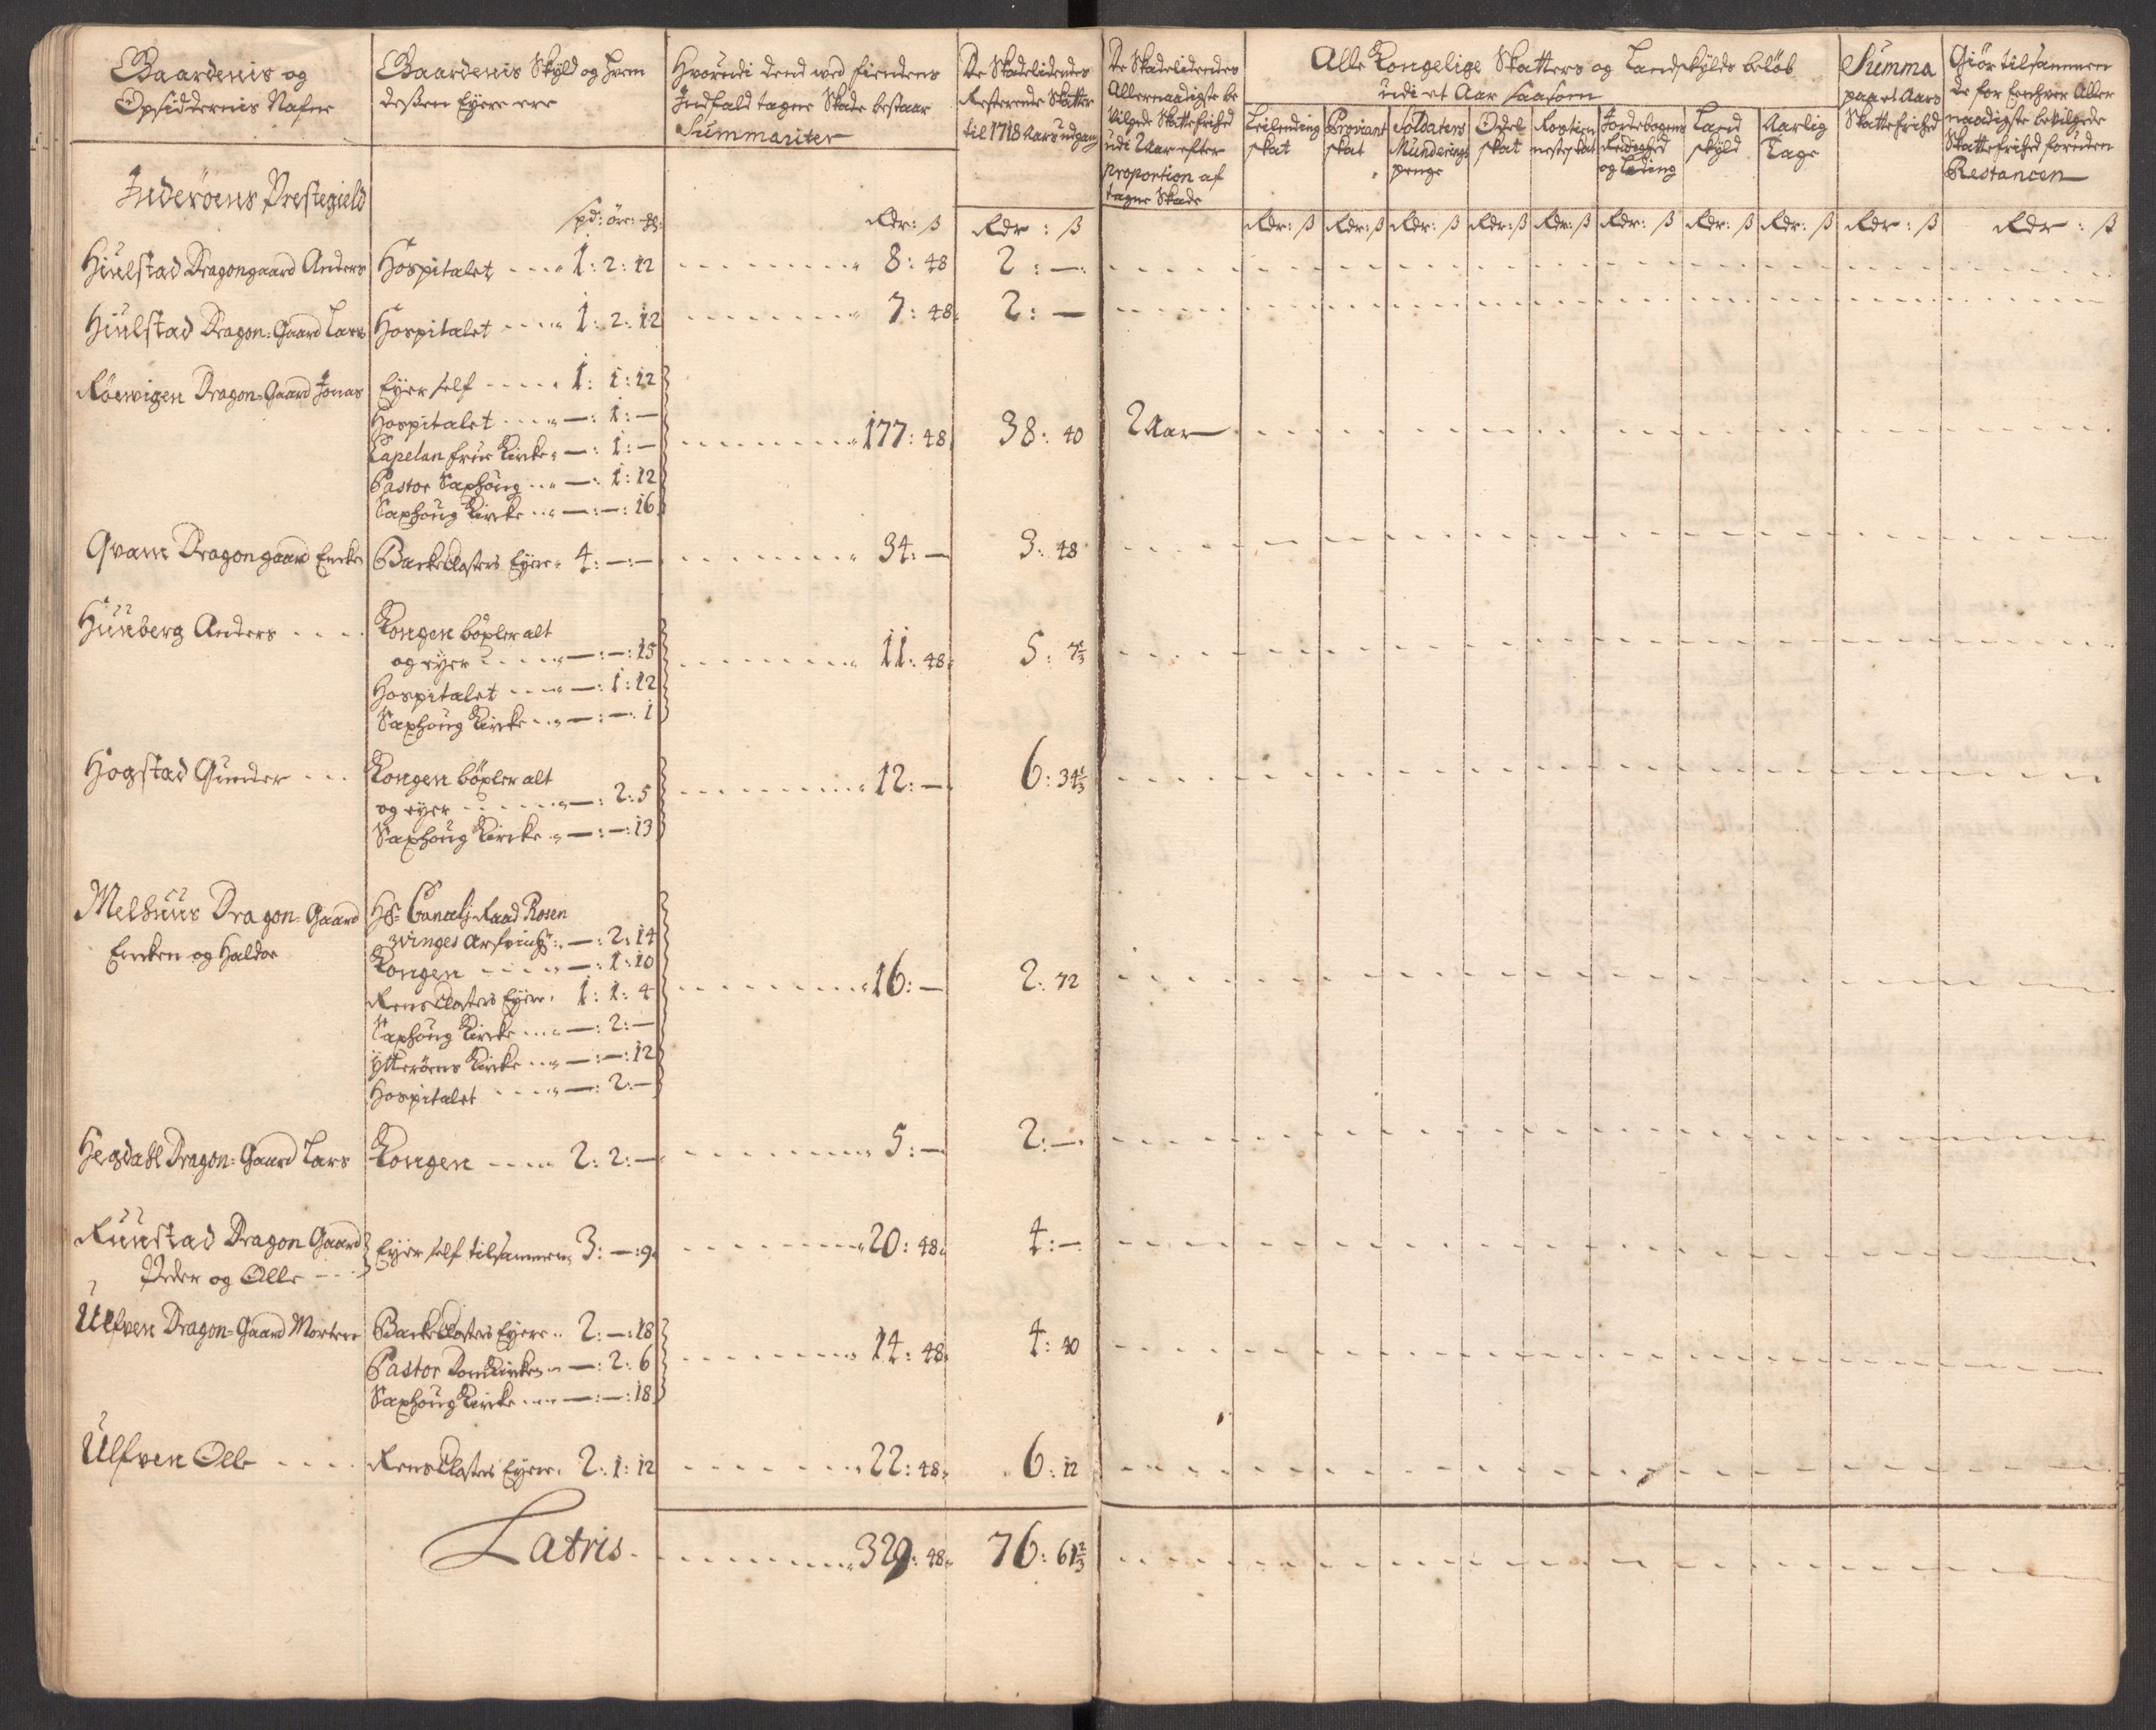 Gaardenis og
Opsiddernis Nafne
Gaardenis Skyld og hvem
dessen Eyere ere
Hvorudi dend ved fiendens
Indfald tagne Skade bestaar
Summariter
De Skadelidendes
Resterende Skatter
til 1718 Aars udgang
De Skadelidendes
Allernaadigste be
vilgede Skattefrihed
udi 2 Aar efter
proportion af
tagne Skade
Alle Kongelige Skatters og Landskylds beløb
udi et Aar saasom
Leilending
skat
Proviant
skat
Soldaters
Munderings
penge
Odel
skat
Rostien
neste skat
Jordebogens
Ledighed
og Leding
Land
skyld
Aarlig
Tage
Summa
paa et Aars
Skattefrihed
Giør tilsammen
de for Eenhver Aller
naadigste bevilgede
Skattefrihed foruden
Restancen
Inderöens Prestegield
spd: öre: mkl:
Rdr: ß
Rdr : ß
Rdr: ß Rdr: ß Rdr: ß Rdr: ß Rdr: ß Rdr: ß Rdr: ß Rdr: ß Rdr: ß Rdr : ß
Hiulstad Dragongaard Anders Hospitalet 1: 2: 12 8: 48 2: —
Hiulstad Dragon-Gaard Lars Hospitalet 1: 2: 12 7: 48 2: —
Röewigen Dragon-Gaard Jonas Eyer self 1: 1: 12
Hospitalet —: 1: —
Capelan frue Kircke —: 1: — 177: 48 38: 40 2 Aar
Pastor Saxhoug —: 1: 12
Saxhoug Kircke —: —: 16
Qvam Dragongaard Encke Backe Closters Eyere 4: —: — 34: — 3: 48
Huuberg Anders Kongen böxler alt
og eyer —: —: 15 11: 48 5: 7 1/3
Hospitalet —: 1: 12
Saxhoug Kircke —: —: 1
Hogstad Gunder Kongen böxler alt
og eyer —: 2: 5 12: — 6: 34 1/3
Saxhoug Kircke —: —: 13
Melhuus Dragon-Gaard Hr Cancelj Raad Rosen
Encken og Haldor zvinges Arfvinger —: 2: 14
Kongen —: 1: 10
Rens Closters Eyere 1: 1: 4 16: — 2: 72
Saxhoug Kircke —: 2: —
Ytterøens Kircke —: —: 12
Hospitalet —: 2: —
Hegdahl Dragon-Gaard Lars Kongen 2: 2: — 5: — 2: —
Ruustad Dragon Gaard
Peder og Olle Eyer self tilsammen 3: —: 9 20: 48 4: —
Ulfven Dragon-Gaard Morten Backe Closters Eyere 2: —: 18
Pastor Domkircken —: 2: 6 14: 48 4: 40
Saxhoug Kircke —: —: 18
Ulfven Olle Rens Closters Eyere 2: 1: 12 22: 48 6: 12
Latris 329: 48 76: 61 2/3